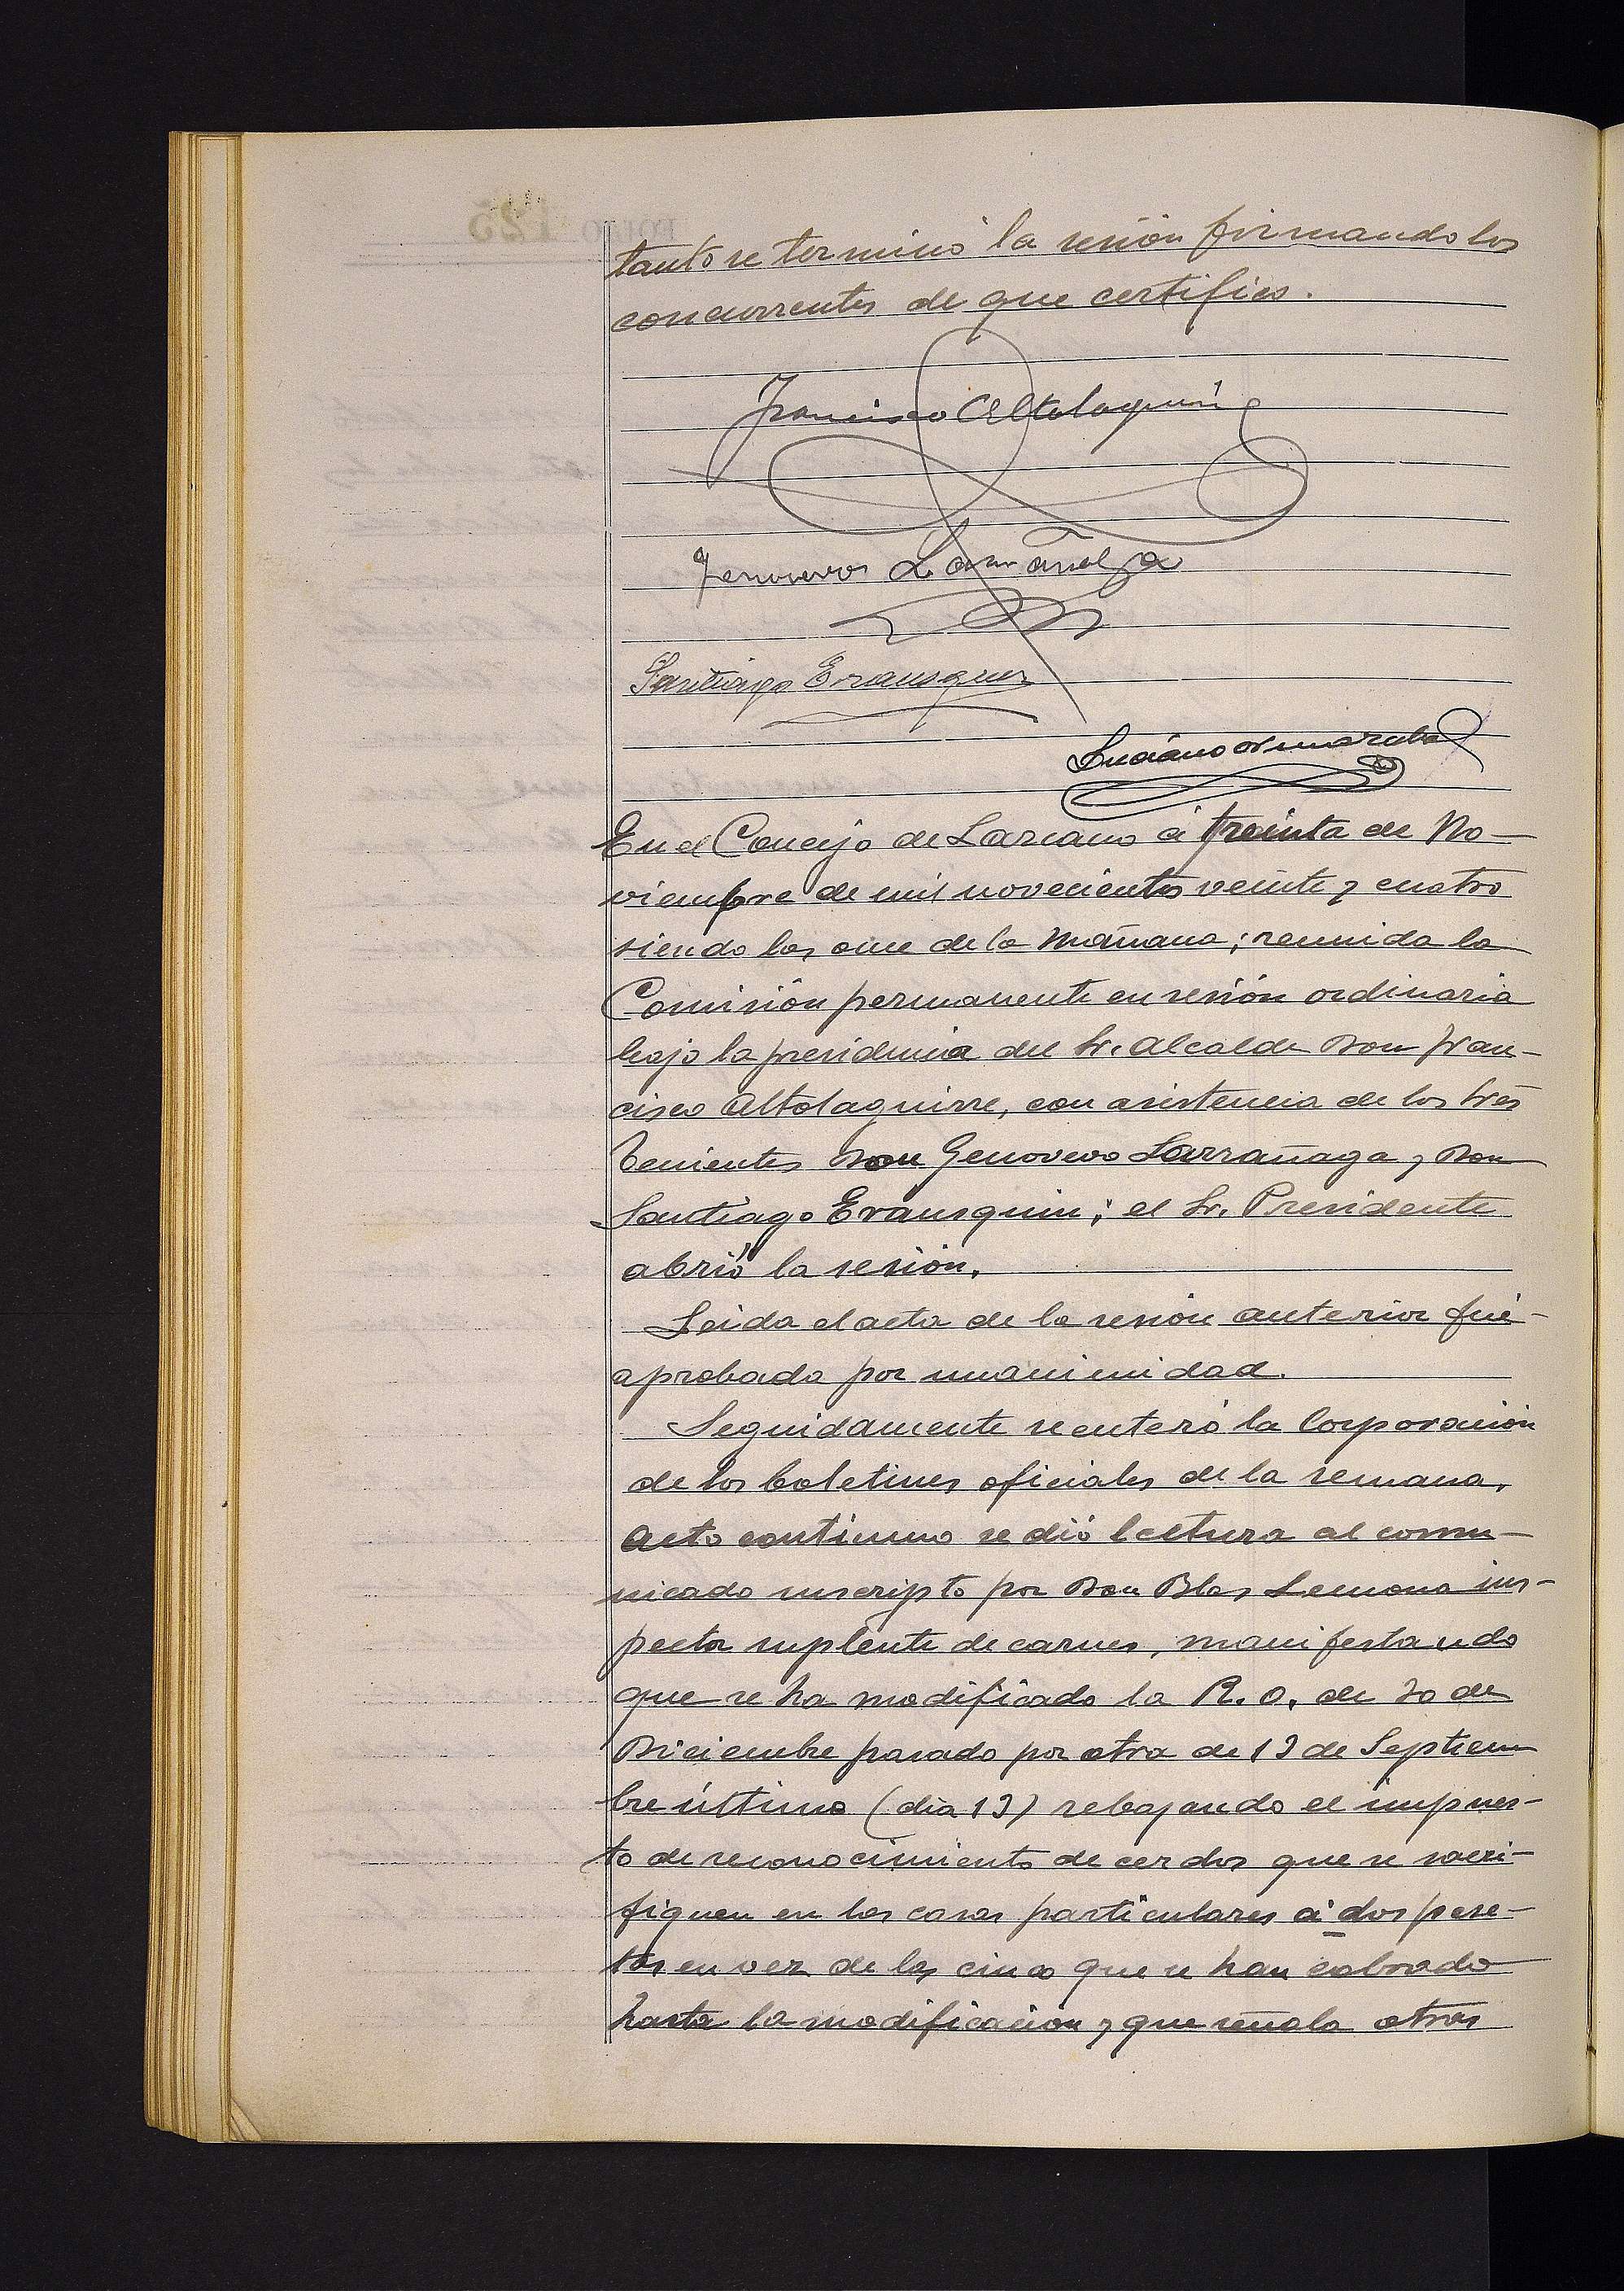 tanto se terminó la sesión firmando los
concurrentes de que certifico.
Francisco Altolaguirre
Genovevo Larrañaga
Santiago Erausquin
Luciano
En el Concejo de Lazcano á treinta de No-
viembre de mil novecientos veinte y cuatro
siendo las once de la mañana; reunida la
Comisión permanente en sesión ordinaria
bajo la presidencia del Sr. Alcalde Don Fran-
cisco Altolaguirre, con asistencia de los tres
Tenientes Don Genovevo Larrañaga y Don
Santiago Erausquin; el Sr. Presidente
abrió la sesión.
Leida el acta de la sesión anterior fué
aprobada por unanimidad.
Seguidamente se enteró la Corporación
de los boletines oficiales de la semana.
Acto continuo se dió lectura al comu-
nicado suscripto por Don Blas Lemona ins-
pector suplente de carnes, manifestando
que se ha modificado la R. O. de 20 de
Diciembre pasado por otra de 13 de Septiem
bre último (dia 13) rebajando el impues-
to de reconocimiento de cerdos que se sacri-
fiquen en las casas particulares á dos pese-
tas en vez de las cinco que se han cobrado
hasta la modificación y que señala otras
FOLIO 125